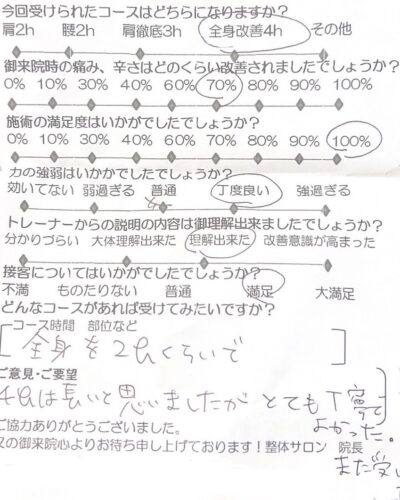 今回受けられたコースはどちらになりますか?
肩2h 腰2h 肩徹底3h 全身改善4h その他
御来院時の痛み、辛さはどのくらい改善されましたでしょうか?
0% 10% 30% 40% 60% 70% 80% 90% 100%
施術の満足度はいかがでしたでしょうか?
0% 10% 30% 40% 60% 70% 80% 90% 100%
力の強弱はいかがでしたでしょうか?
効いてない 弱過ぎる 普通 丁度良い 強過ぎる
トレーナーからの説明の内容は御理解出来ましたでしょうか?
分かりづらい 大体理解出来た 理解出来た 改善意識が高まった
接客についてはいかがでしたでしょうか?
不満 ものたりない 普通 満足 大満足
どんなコースがあれば受けてみたいですか?
コース時間 部位など
全身を2hくらいで
ご意見・ご要望
4hは長いと思いましたが とても丁寧で
よかった。
ご協力ありがとうございました。
又の御来院心よりお待ち申し上げております!整体サロン 院長
また